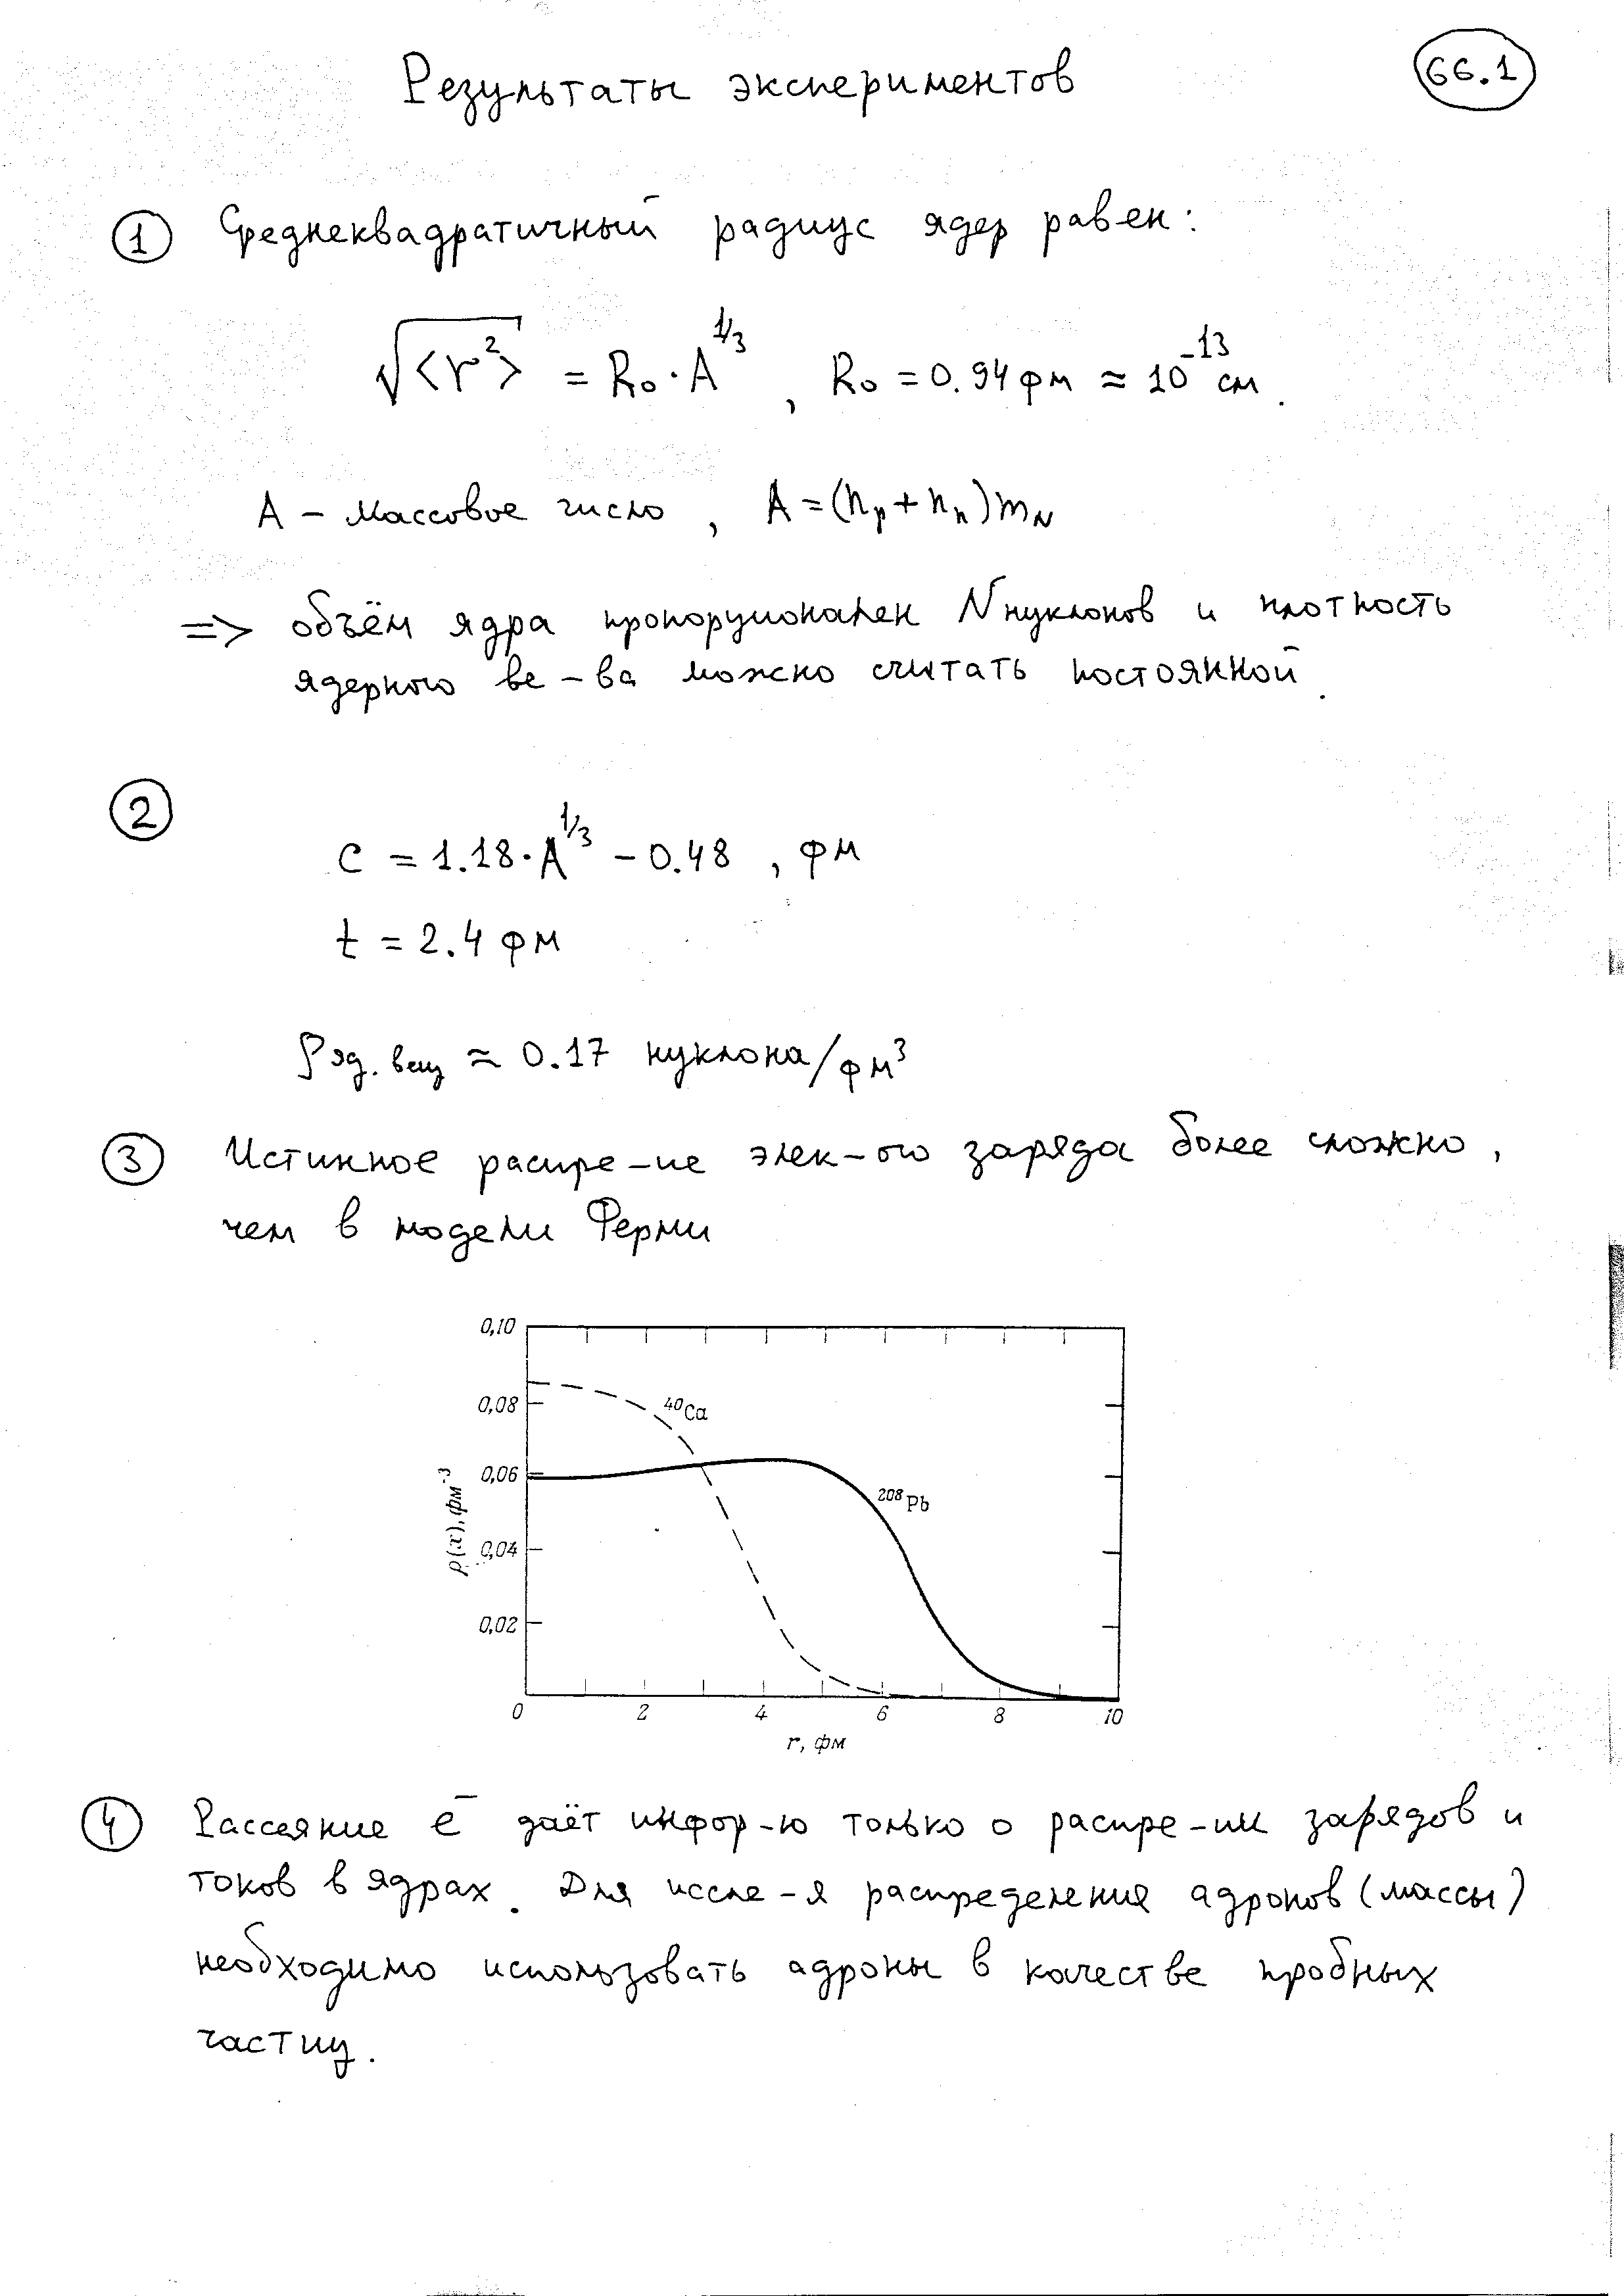 Результаты экспериментов
66.1
① Среднеквадратичный радиус ядер равен:
√<r²> = R₀·A^1/3 , R₀ = 0.94 фм ≈ 10^-13 см.
A – массовое число , A = (nₚ + nₙ)m_N
=> объём ядра пропорционален N нуклонов и плотность
ядерного ве-ва можно считать постоянной.
②
c = 1.18·A^1/3 – 0.48 , фм
t = 2.4 фм
ρяд. вещ ≈ 0.17 нуклона/фм³
③ Истинное распре-ие элек-ого заряда более сложно,
чем в модели Ферми
0,10
0,08
⁴⁰Ca
0,06
²⁰⁸Pb
ρ(x), фм⁻³
0,04
0,02
0 2 4 6 8 10
r, фм
④ Рассеяние e⁻ даёт инфор-ю только о распре-ии зарядов и
токов в ядрах. Для иссле-я распределения адронов (массы)
необходимо использовать адроны в качестве пробных
частиц.